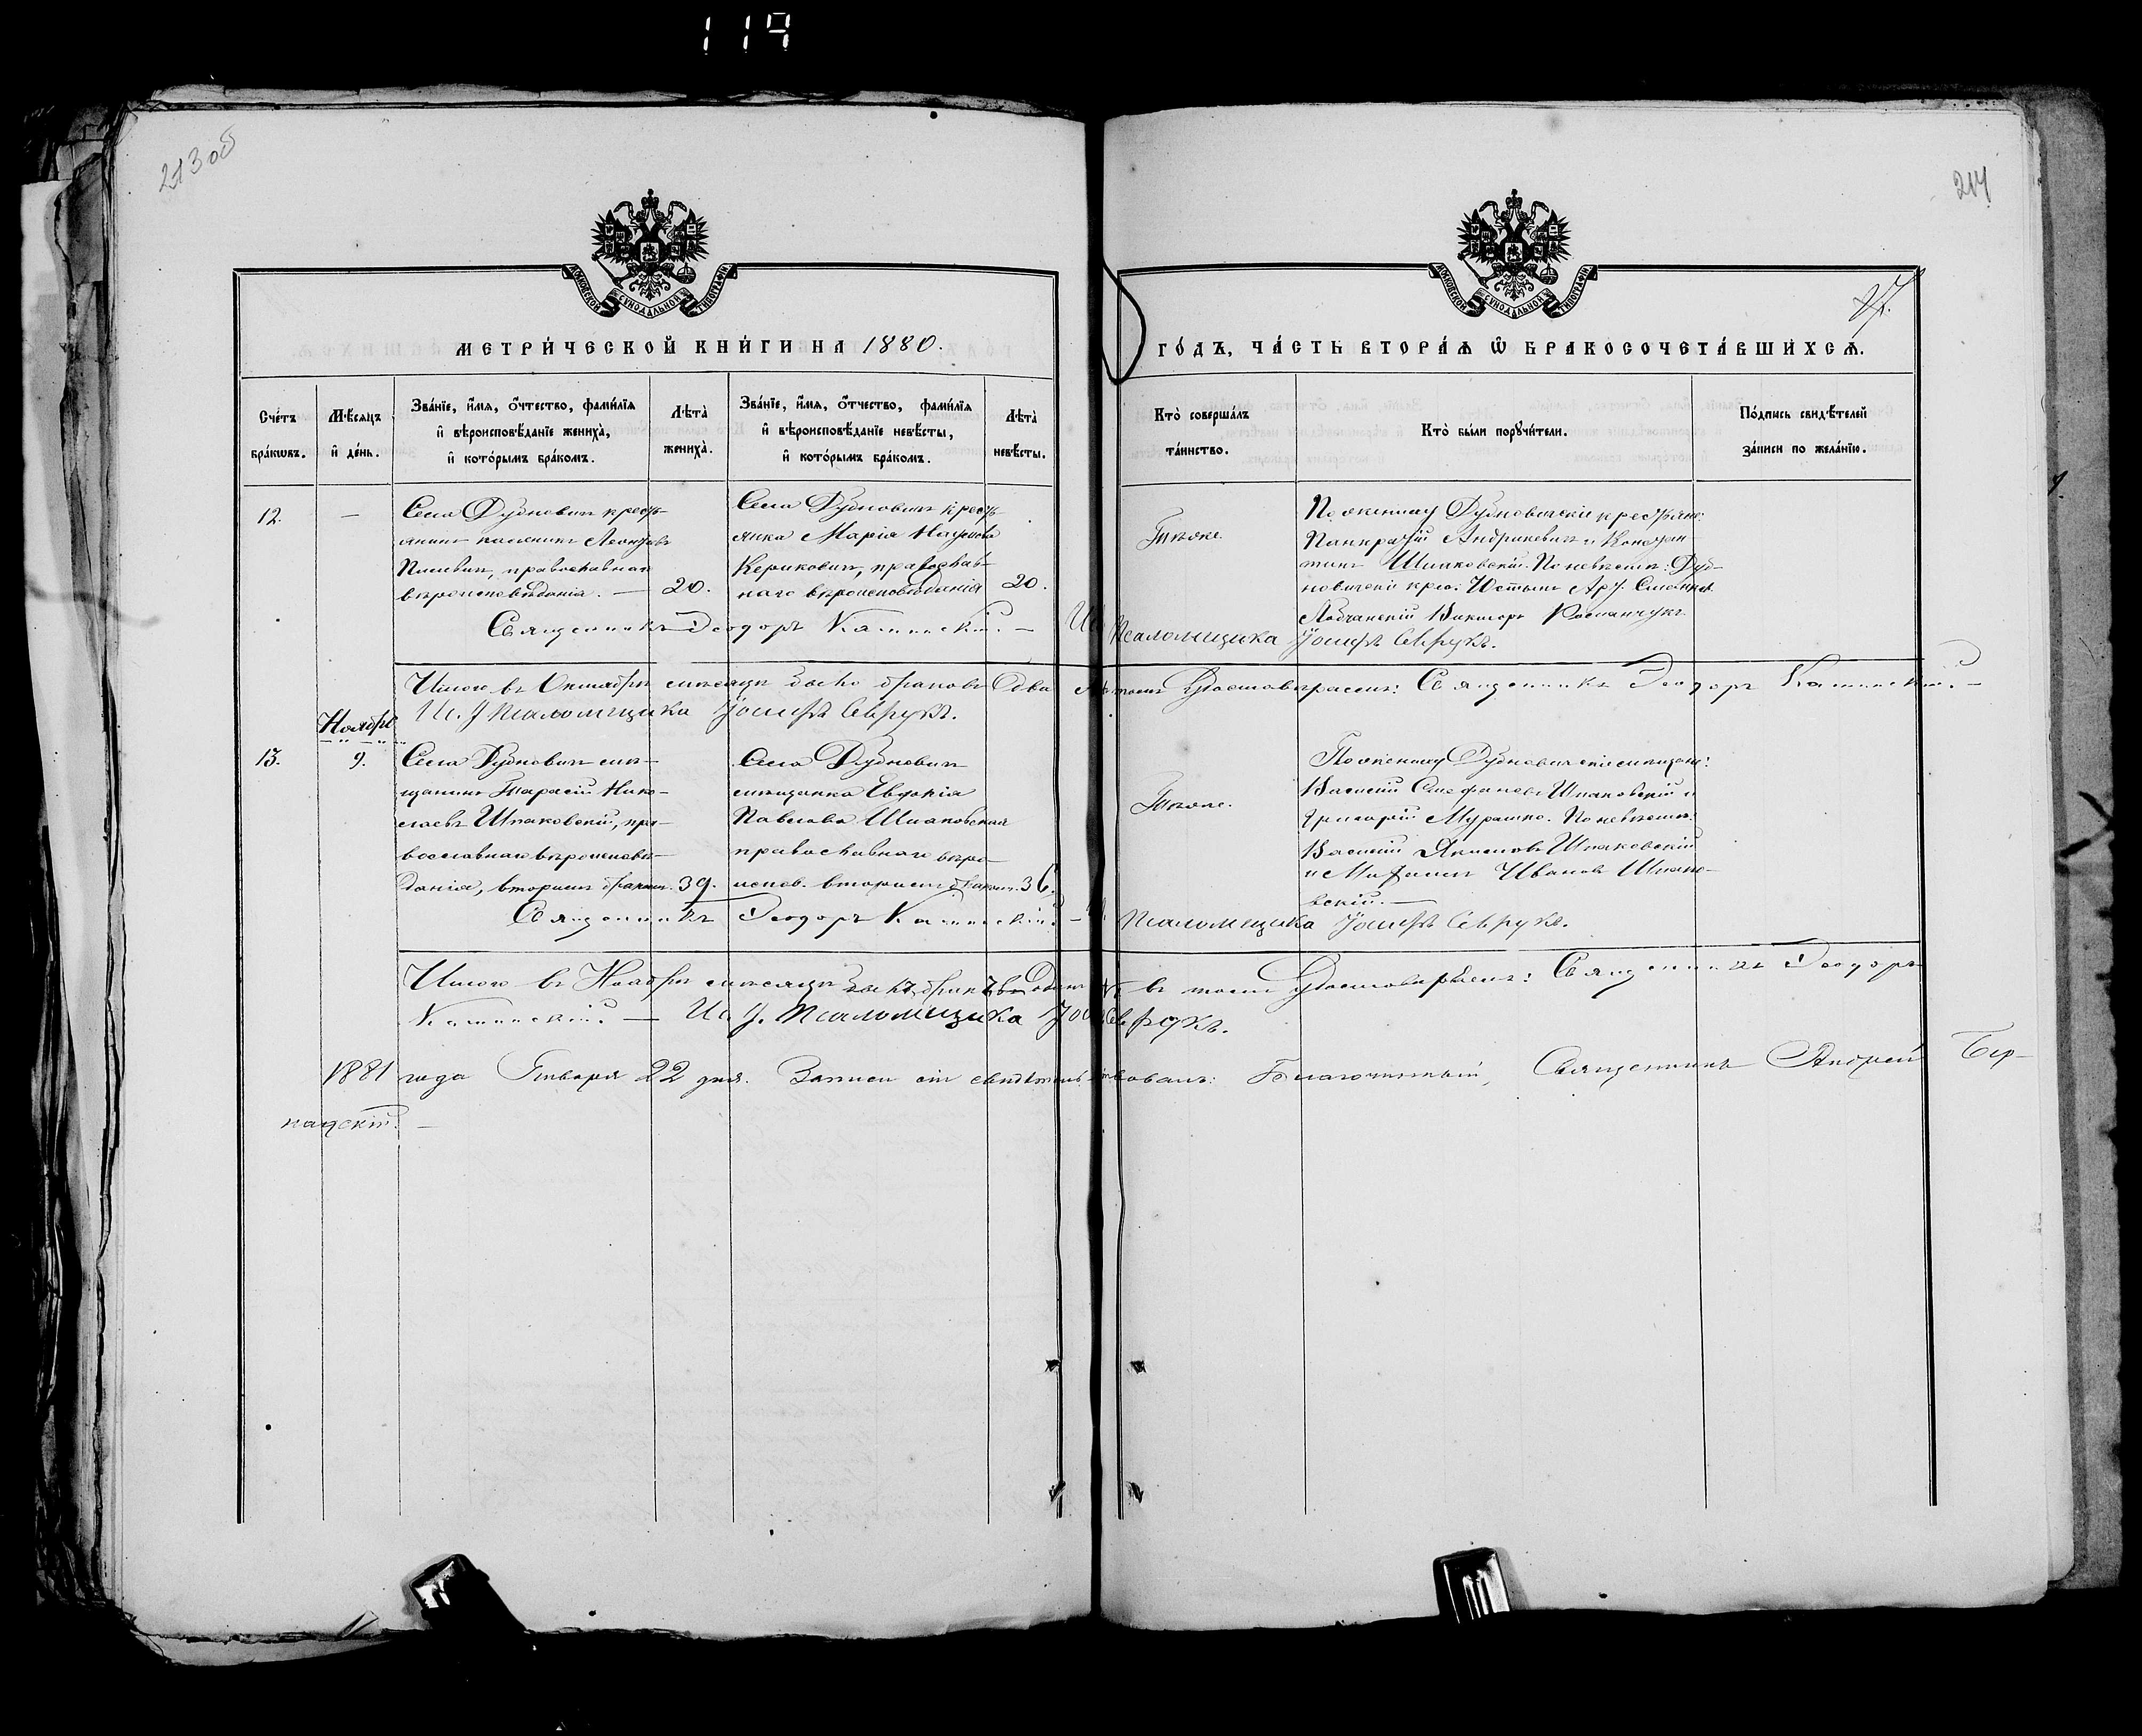 119
213 об
214
МОСКОВСКОЙ СѴНОДАЛЬНОЙ ТИПОГРАФІИ
МОСКОВСКОЙ СѴНОДАЛЬНОЙ ТИПОГРАФІИ
МЕТРИ́ЧЕСКОЙ КНИ́ГИ НА 1880.
ГО́ДЪ, ЧА́СТЬ ВТОРА́Ѧ Ѽ БРАКОСОЧЕТА́ВШИХСѦ.
Сче́тъ
бра́кѡвъ.
Мѣ́сяцъ
и҆ де́нь.
Зва́нїе, и҆́мя, ѻ҆́тчество, фами́лїя
и҆ вѣроисповѣ́данїе жениха̀,
и҆ кото́рымъ бра́комъ.
Лѣ́та
жениха̀.
Зва́нїе, и҆́мя, ѻ҆́тчество, фами́лїя
и҆ вѣроисповѣ́данїе невѣ́сты,
и҆ кото́рымъ бра́комъ.
Лѣ́та
невѣ́сты.
Кто̀ соверша́лъ
та́инство.
Кто̀ бы́ли порꙋчи́тели.
По́дпись свидѣ́телей
за́писи по жела́нїю.
12.
—
Села Дубновичъ кресть-
янинъ Леонтьевъ
православнаго
вѣроисповѣданія. —
20.
Села Дубновичъ кресть-
янка Марія Наумова
Керикович, православ-
наго вѣроисповѣданія
20.
Тѣже.
По жениху Дубновичскіе крестьяне:
Панкратій Андрикевич и Констан-
тинъ Шпаковскій. По невѣстѣ: Дуб-
новичскіе крес:
Лобчанскій Викторъ Романчукъ.
Священникъ Ѳеодоръ Каминскій. — И.
Псаломщика Іосифъ Сѣврукъ.
Итого въ Октябрѣ мѣсяцѣ было браковъ Два
томъ удостовѣряемъ: Священникъ Ѳеодоръ Каминскій. —
И. д. Псаломщика Іосифъ Сѣврукъ.
Ноябрь
13.
9.
Села Дубновичъ мѣ-
щанинъ Тарасій Нико-
лаевъ Шпаковскій, пра-
вославнаго вѣроисповѣ-
данія, вторымъ бракомъ.
39.
Села Дубновичъ
мѣщанка Евдокія
Павлова Шпаковская
православнаго вѣро-
испов. вторымъ бракомъ.
36.
Тѣже.
По жениху Дубновичскіе мѣщане:
Василій Стефановъ Шпаковскій и
Григорій Мурашко. По невѣстѣ:
Василій Якимовъ Шпаковскій
и Иванов Шпако-
вскій. —
Священникъ Ѳеодоръ Каминскій. —
Псаломщика Іосифъ Сѣврукъ.
Итого въ Ноябрѣ мѣсяцѣ Одинъ
въ томъ удостовѣряемъ: Священникъ Ѳеодоръ
Каминскій. — И. д. Псаломщика Іосифъ Сѣврукъ.
1881 года Января 22 дня. Записи сіи свидѣтельствовалъ: Благочинный, Священникъ Андрей Бер-
надскій. —